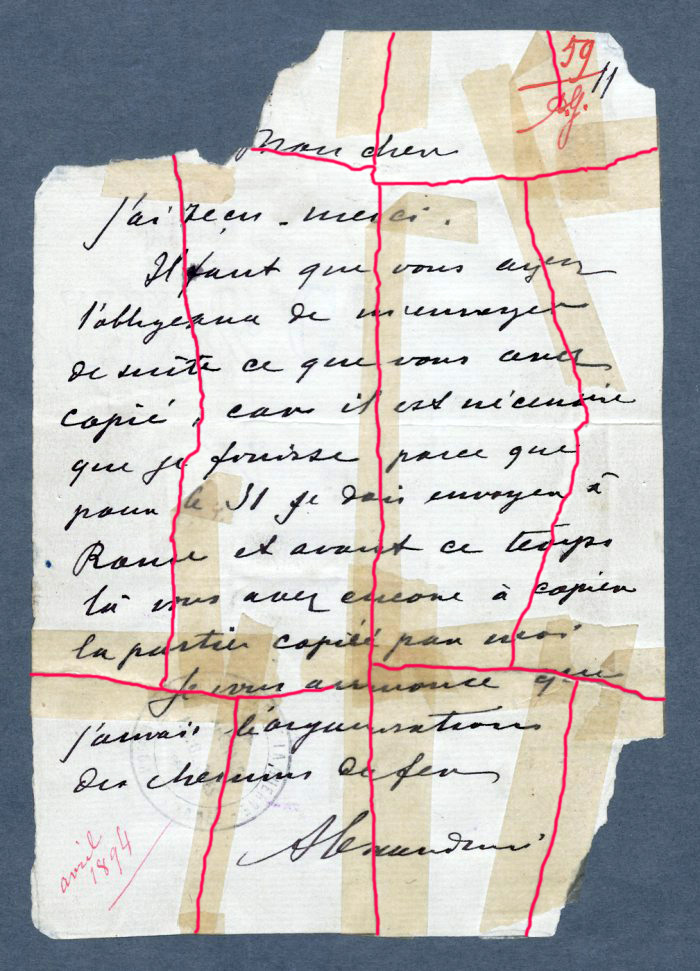 59
D.G. 11
Mon cher
J'ai reçu - merci.
Il faut que vous ayez
l'obligeance de m'envoyer
de suite ce que vous avez
copié, car il est nécessaire
que je finisse parce que
pour le 31 je dois envoyer à
Rome et avant ce temps
là vous avez encore à copier
la partie copiée par moi
Je vous annonce que
j'aurais l'organisation
des chemins de fer
Alexandrine
avril
1894